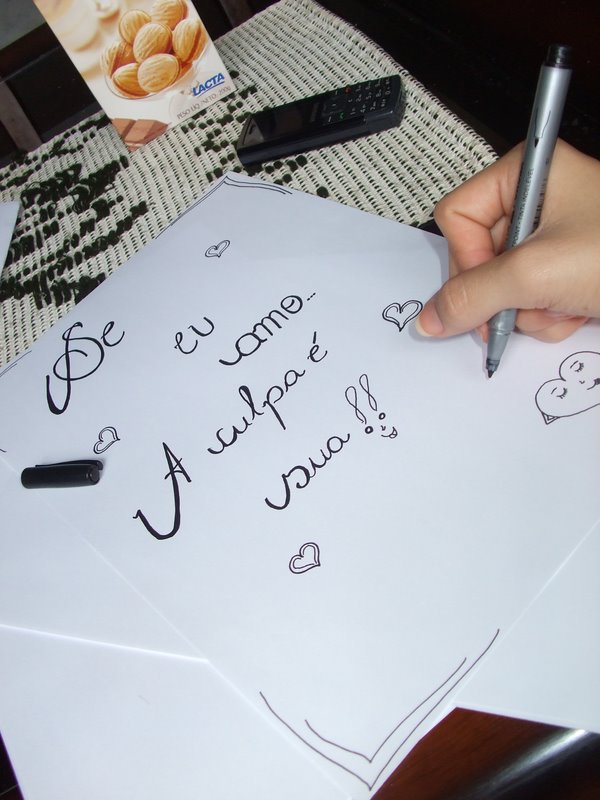 LACTA
PESO LÍQ. NETO. 200g
Se eu amo...
A culpa é
sua!!